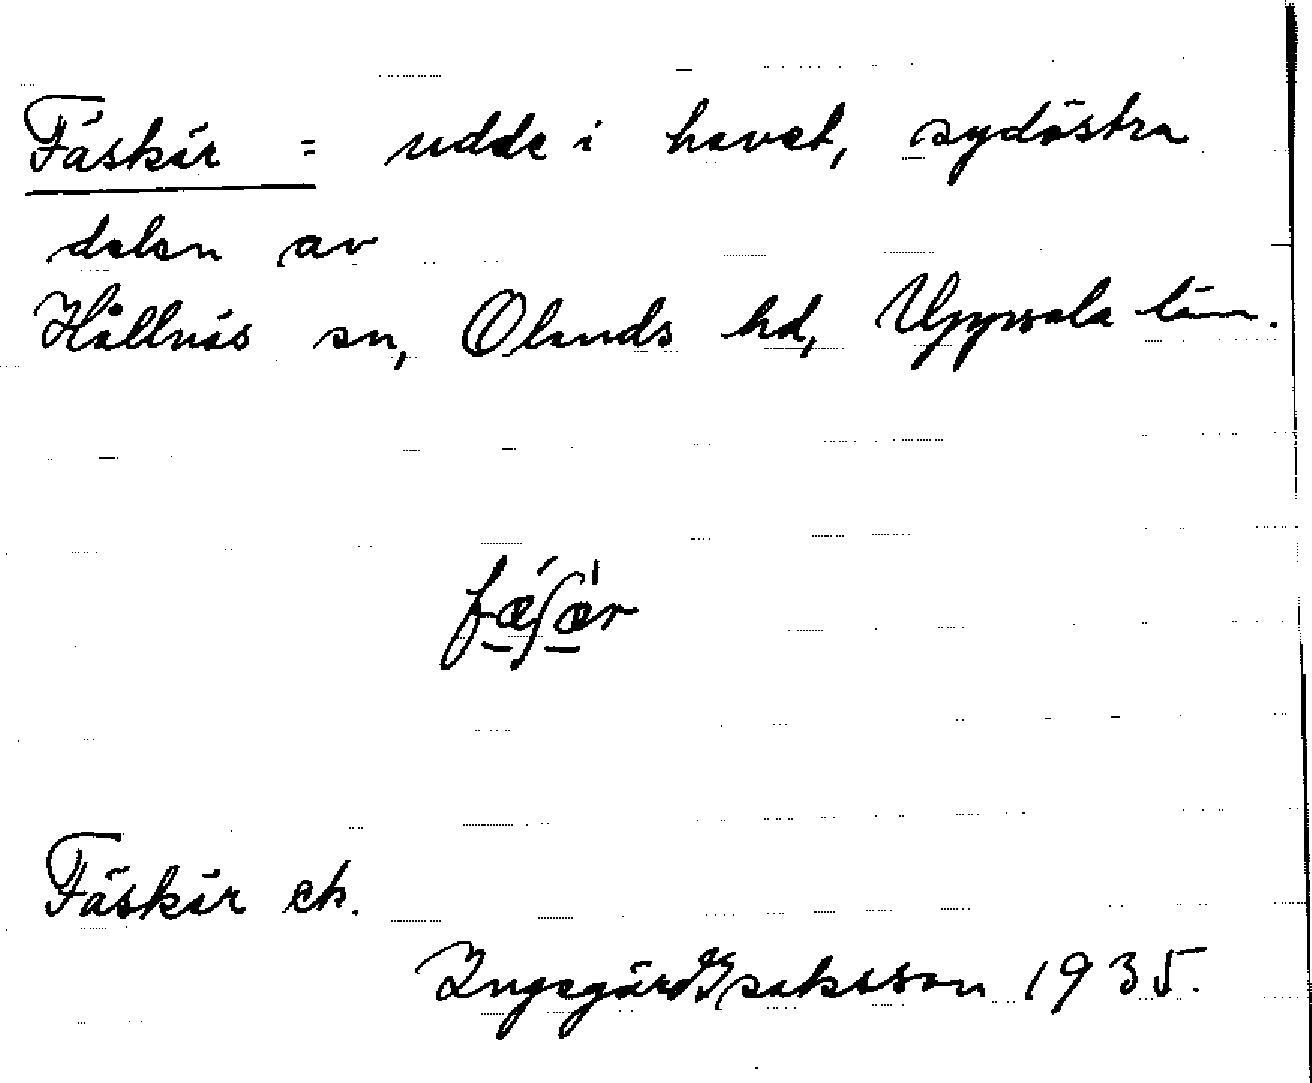 Fäskär = udde i havet, sydöstra
delen av
Hållnäs sn, Olands hd, Uppsala län.
fæʃær
Fäskär ek.
Ingegärd Isaksson 1935.